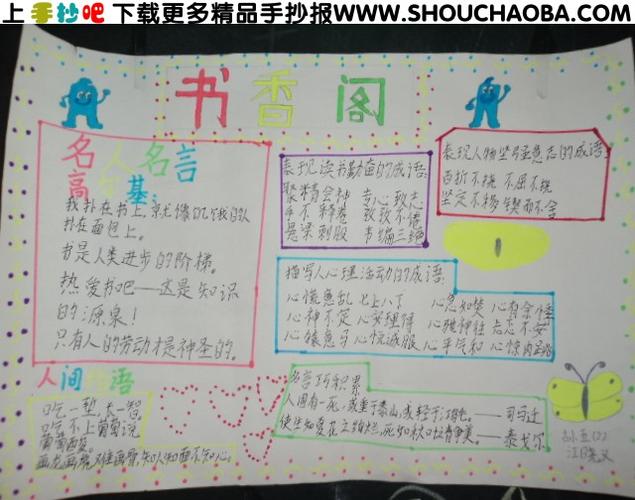 上手抄吧 下载更多精品手抄报WWW.SHOUCHAOBA.COM
书香阁
名人名言
高尔基:
我扑在书上,就像饥饿的人
扑在面包上。
书是人类进步的阶梯。
热爱书吧——这是知识
的源泉!
只有人的劳动才是神圣的。
表现读书勤奋的成语:
聚精会神 专心致志
手不释卷 孜孜不倦
悬梁刺股 韦编三绝
表现人物坚强意志的成语:
百折不挠 不屈不挠
坚定不移 锲而不舍
描写人心理活动的成语:
心慌意乱 七上八下 心急如焚 心有余悸
心神不定 心安理得 心驰神往 忐忑不安
心猿意马 心悦诚服 心平气和 心惊肉跳
人间
语
吃一堑,长一智
吃不上葡萄说
葡萄酸。
画龙画虎难画骨,知人知面不知心。
名言巧积累
人固有一死,或重于泰山,或轻于鸿毛。——司马迁
使生如夏花之绚烂,死如秋叶之静美。——泰戈尔
五(2)